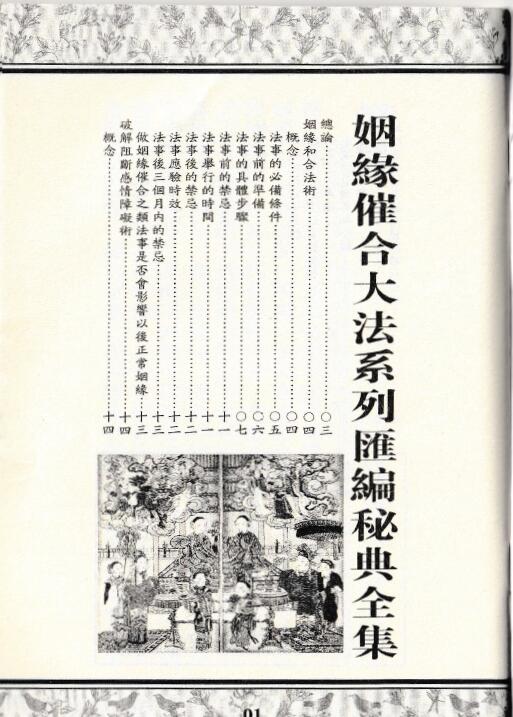 姻緣催合大法系列匯編秘典全集
總論……○三
姻緣和合法術……○四
概念……○四
法事的必備條件……○五
法事前的準備……○六
法事的具體步驟……○七
法事前的禁忌……十一
法事舉行的時間……十一
法事後的禁忌……十二
法事應驗時效……十二
法事後三個月內的禁忌……十三
做姻緣催合之類法事是否會影響以後正常姻緣……十三
破解阻斷感情障礙術……十四
概念……十四
01